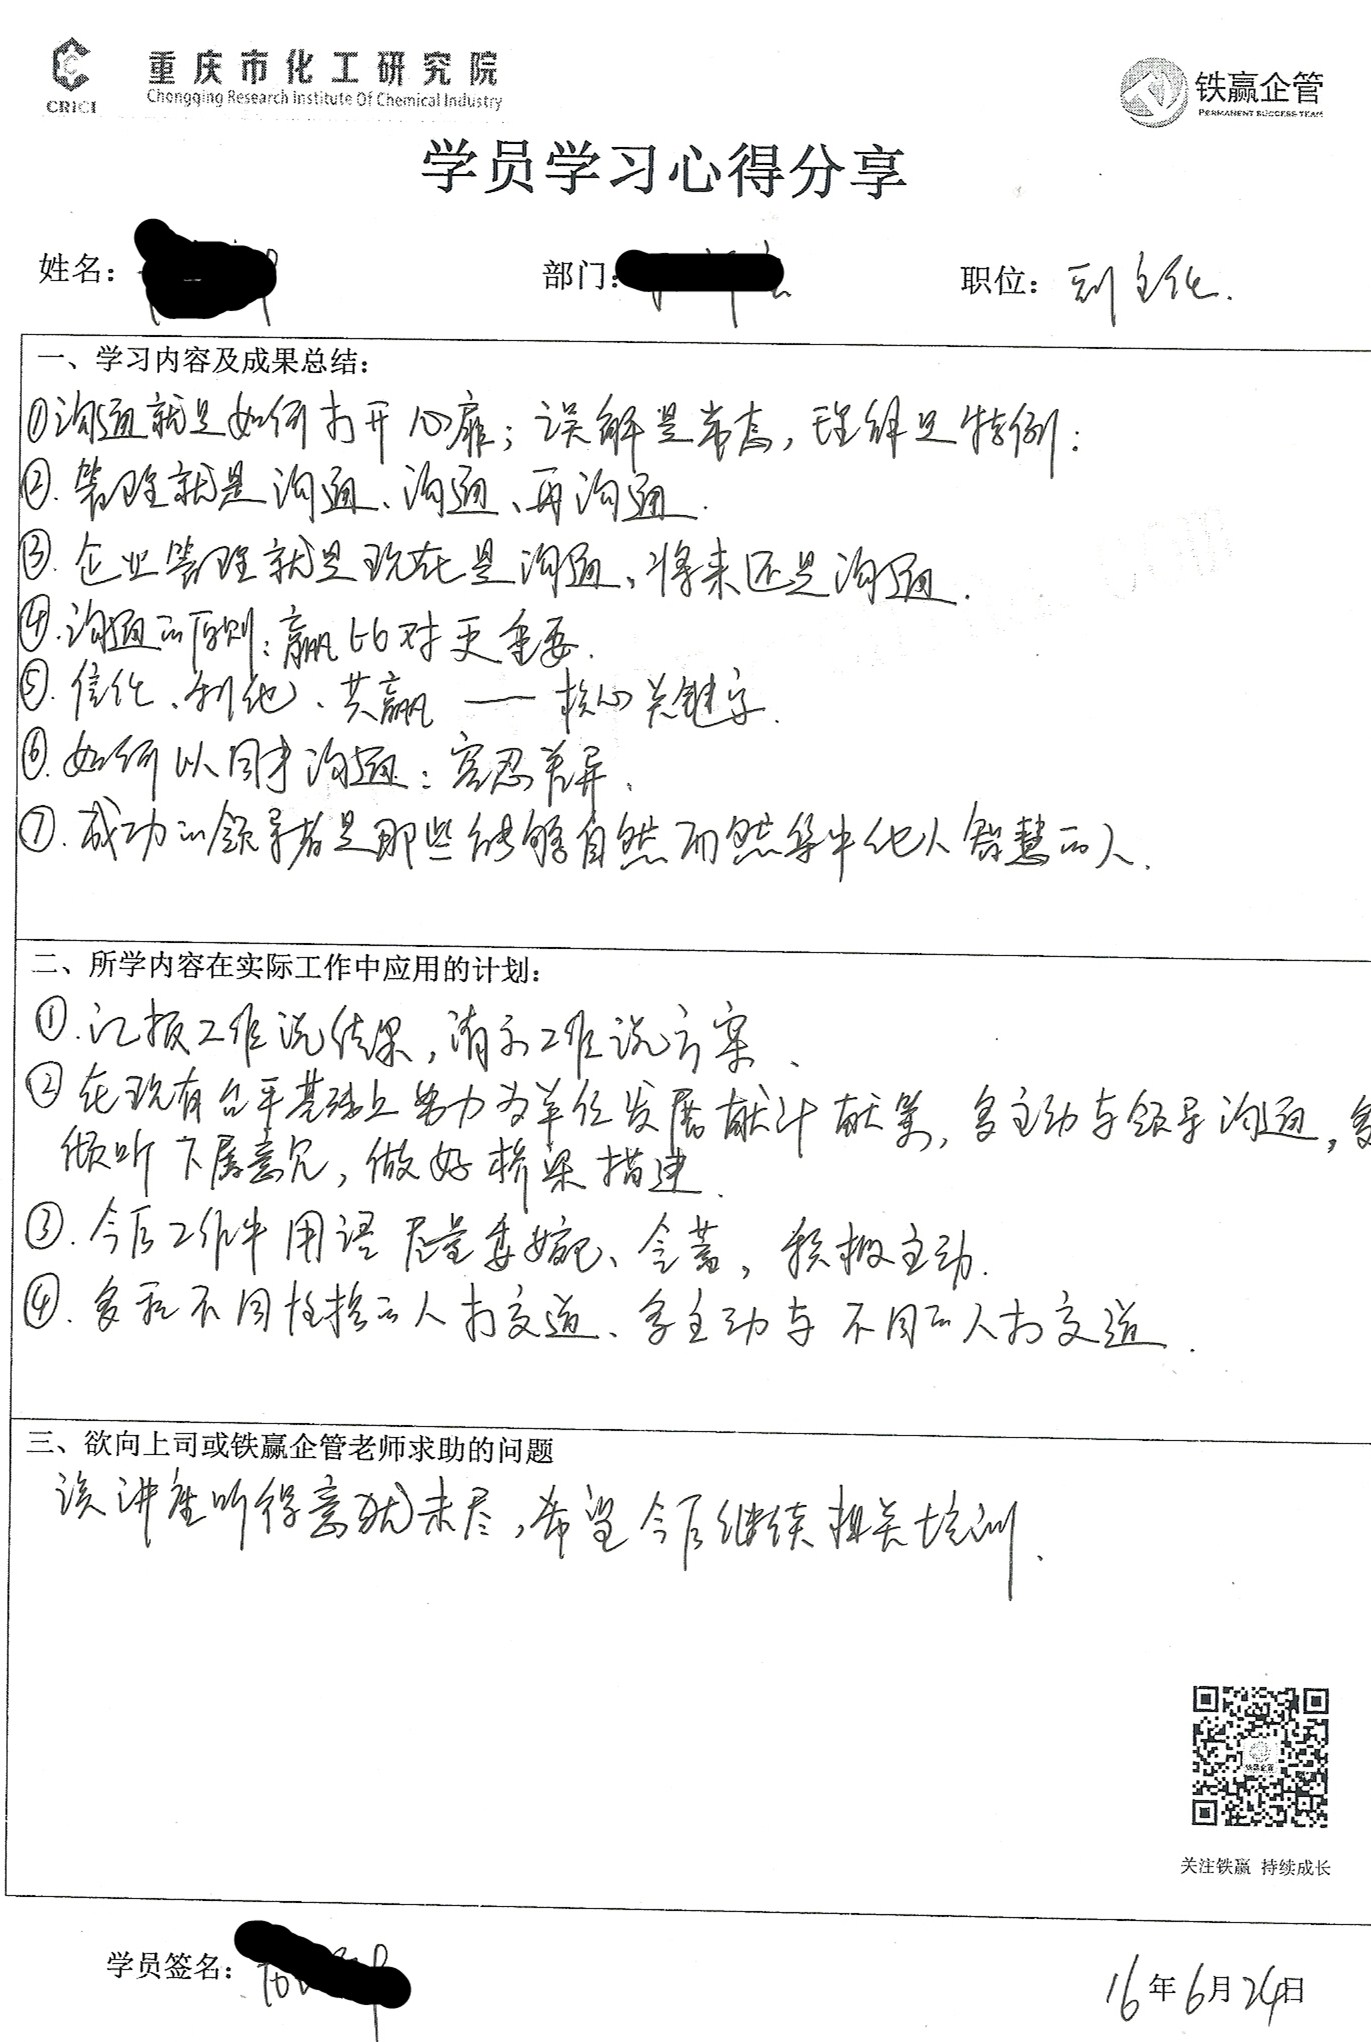 CRICI
重庆市化工研究院
Chongqing Research Institute Of Chemical Industry
铁赢企管
PERMANENT SUCCESS TEAM
学员学习心得分享
姓名： 部门： 职位：副主任.
一、学习内容及成果总结：
①沟通就是如何打开心扉；误解是常态，理解是特例；
②.管理就是沟通、沟通、再沟通.
③.企业管理就是现在是沟通、将来还是沟通.
④.沟通的原则：赢比对更重要.
⑤.信任、利他、共赢——核心关键字.
⑥.如何以同事沟通：容忍差异.
⑦.成功的领导者是那些能够自然而然集中他人智慧的人.
二、所学内容在实际工作中应用的计划：
①.汇报工作说结果，请示工作说方案、
②在现有台平基础上努力为单位发展献计献策，多主动与领导沟通，多
倾听下属意见，做好桥梁搭建.
③.今后工作中用语尽量委婉、含蓄，积极主动.
④.多和不同性格的人打交道、多主动与不同的人打交道.
三、欲向上司或铁赢企管老师求助的问题
该讲座听得意犹未尽，希望今后继续相关培训.
铁赢企管
关注铁赢 持续成长
学员签名：
16年6月24日